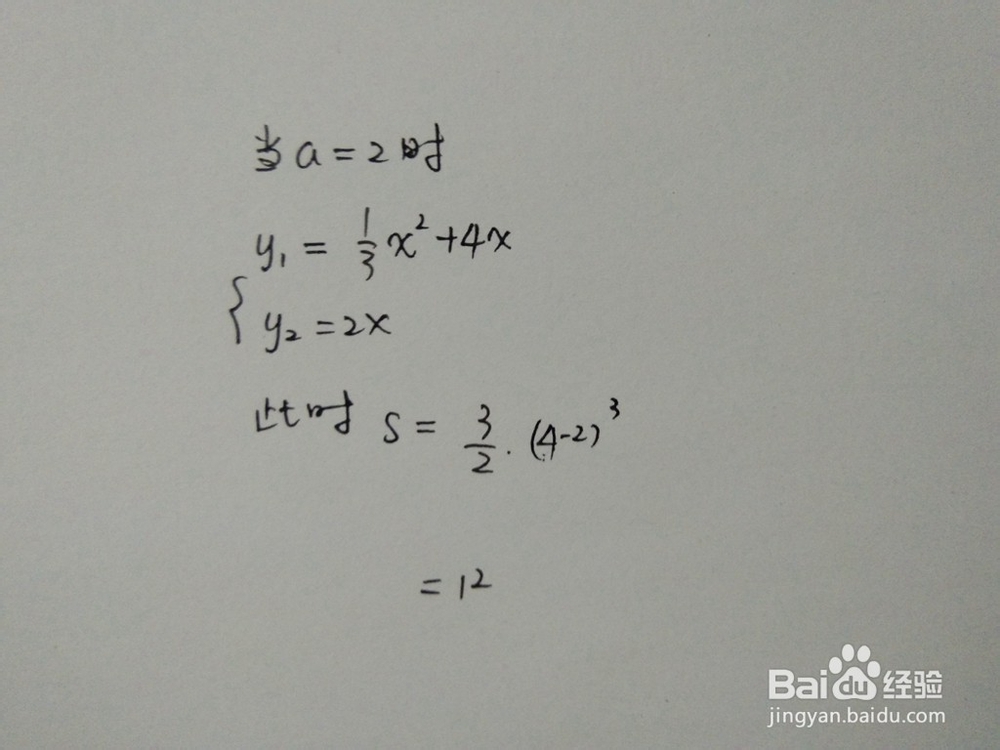 当a=2时
y₁ = 1/3 x²+4x
{ y₂ =2x
此时 S = 3/2 · (4-2)³
= 12
Baidu 经验
jingyan.baidu.com